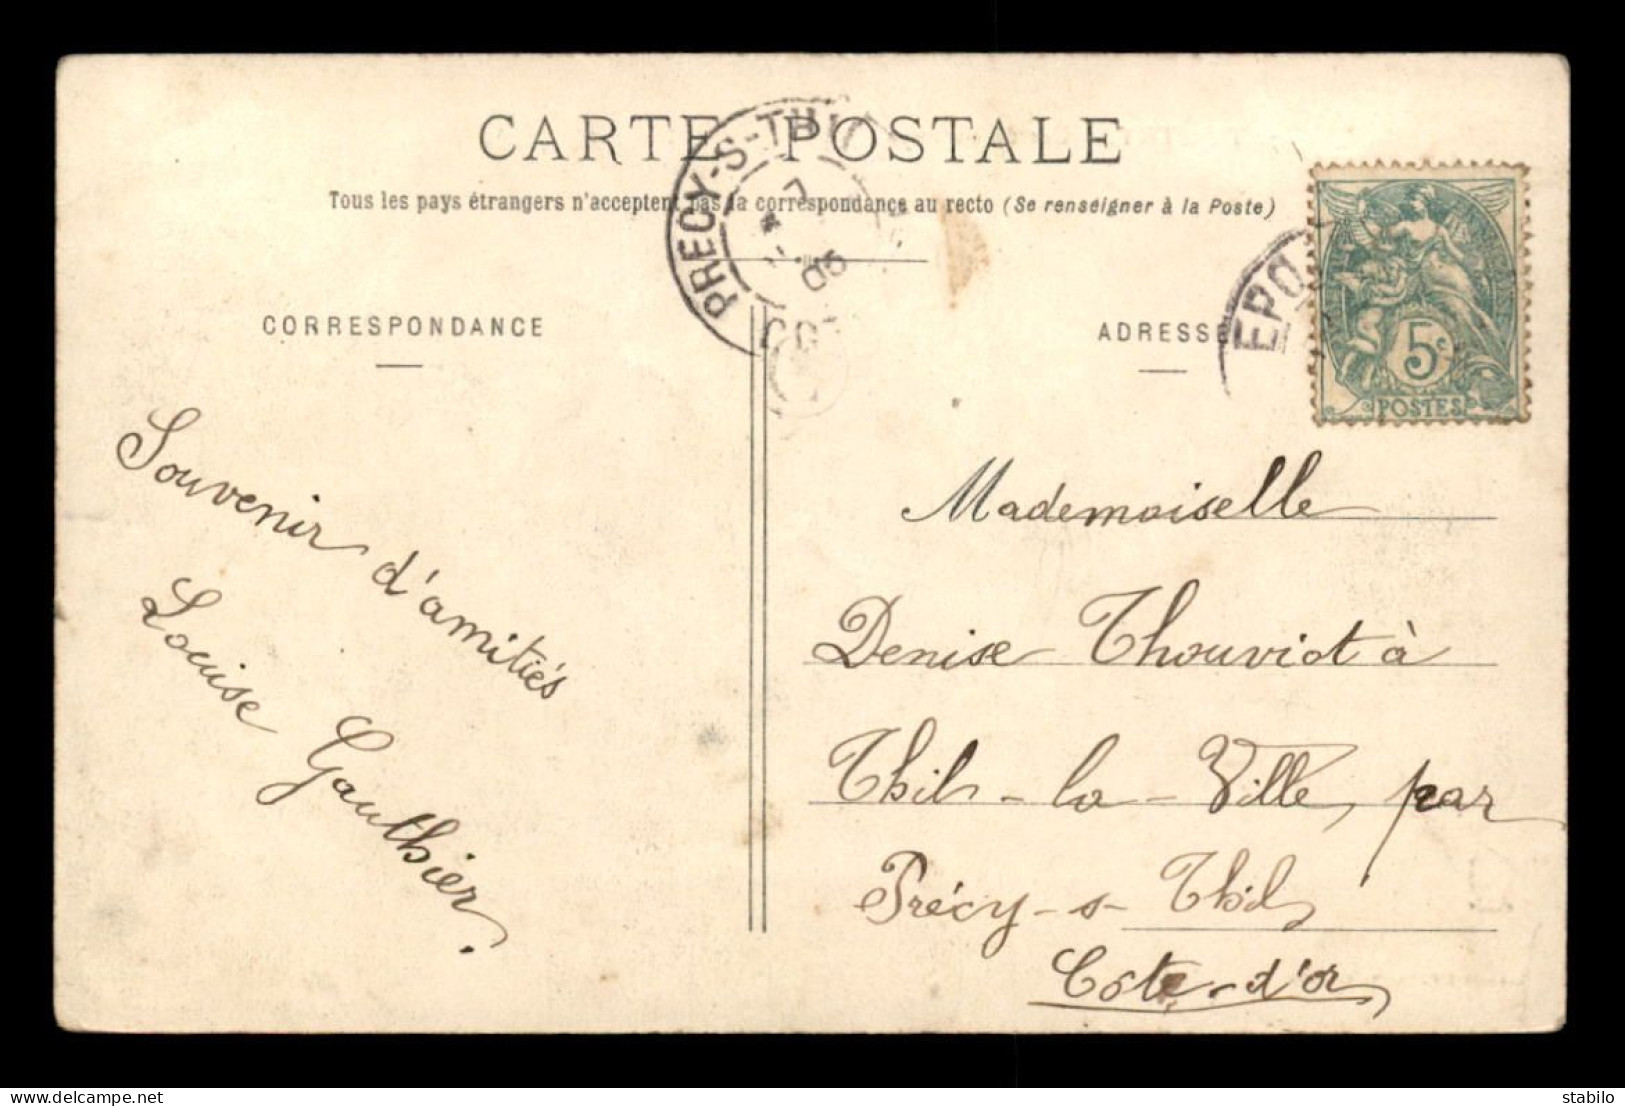 CARTE POSTALE
Tous les pays étrangers n'acceptent pas la correspondance au recto (Se renseigner à la Poste)
PRECY-S-THIL
7
05
COT
CORRESPONDANCE
ADRESSE
EPO
5c
POSTES
Souvenir d'amitiés
Louise Gauthier.
Mademoiselle
Denise Thouviot à
Thil-la-Ville, par
Précy-s-Thil
Côte-d'or
delcampe.net
stabilo